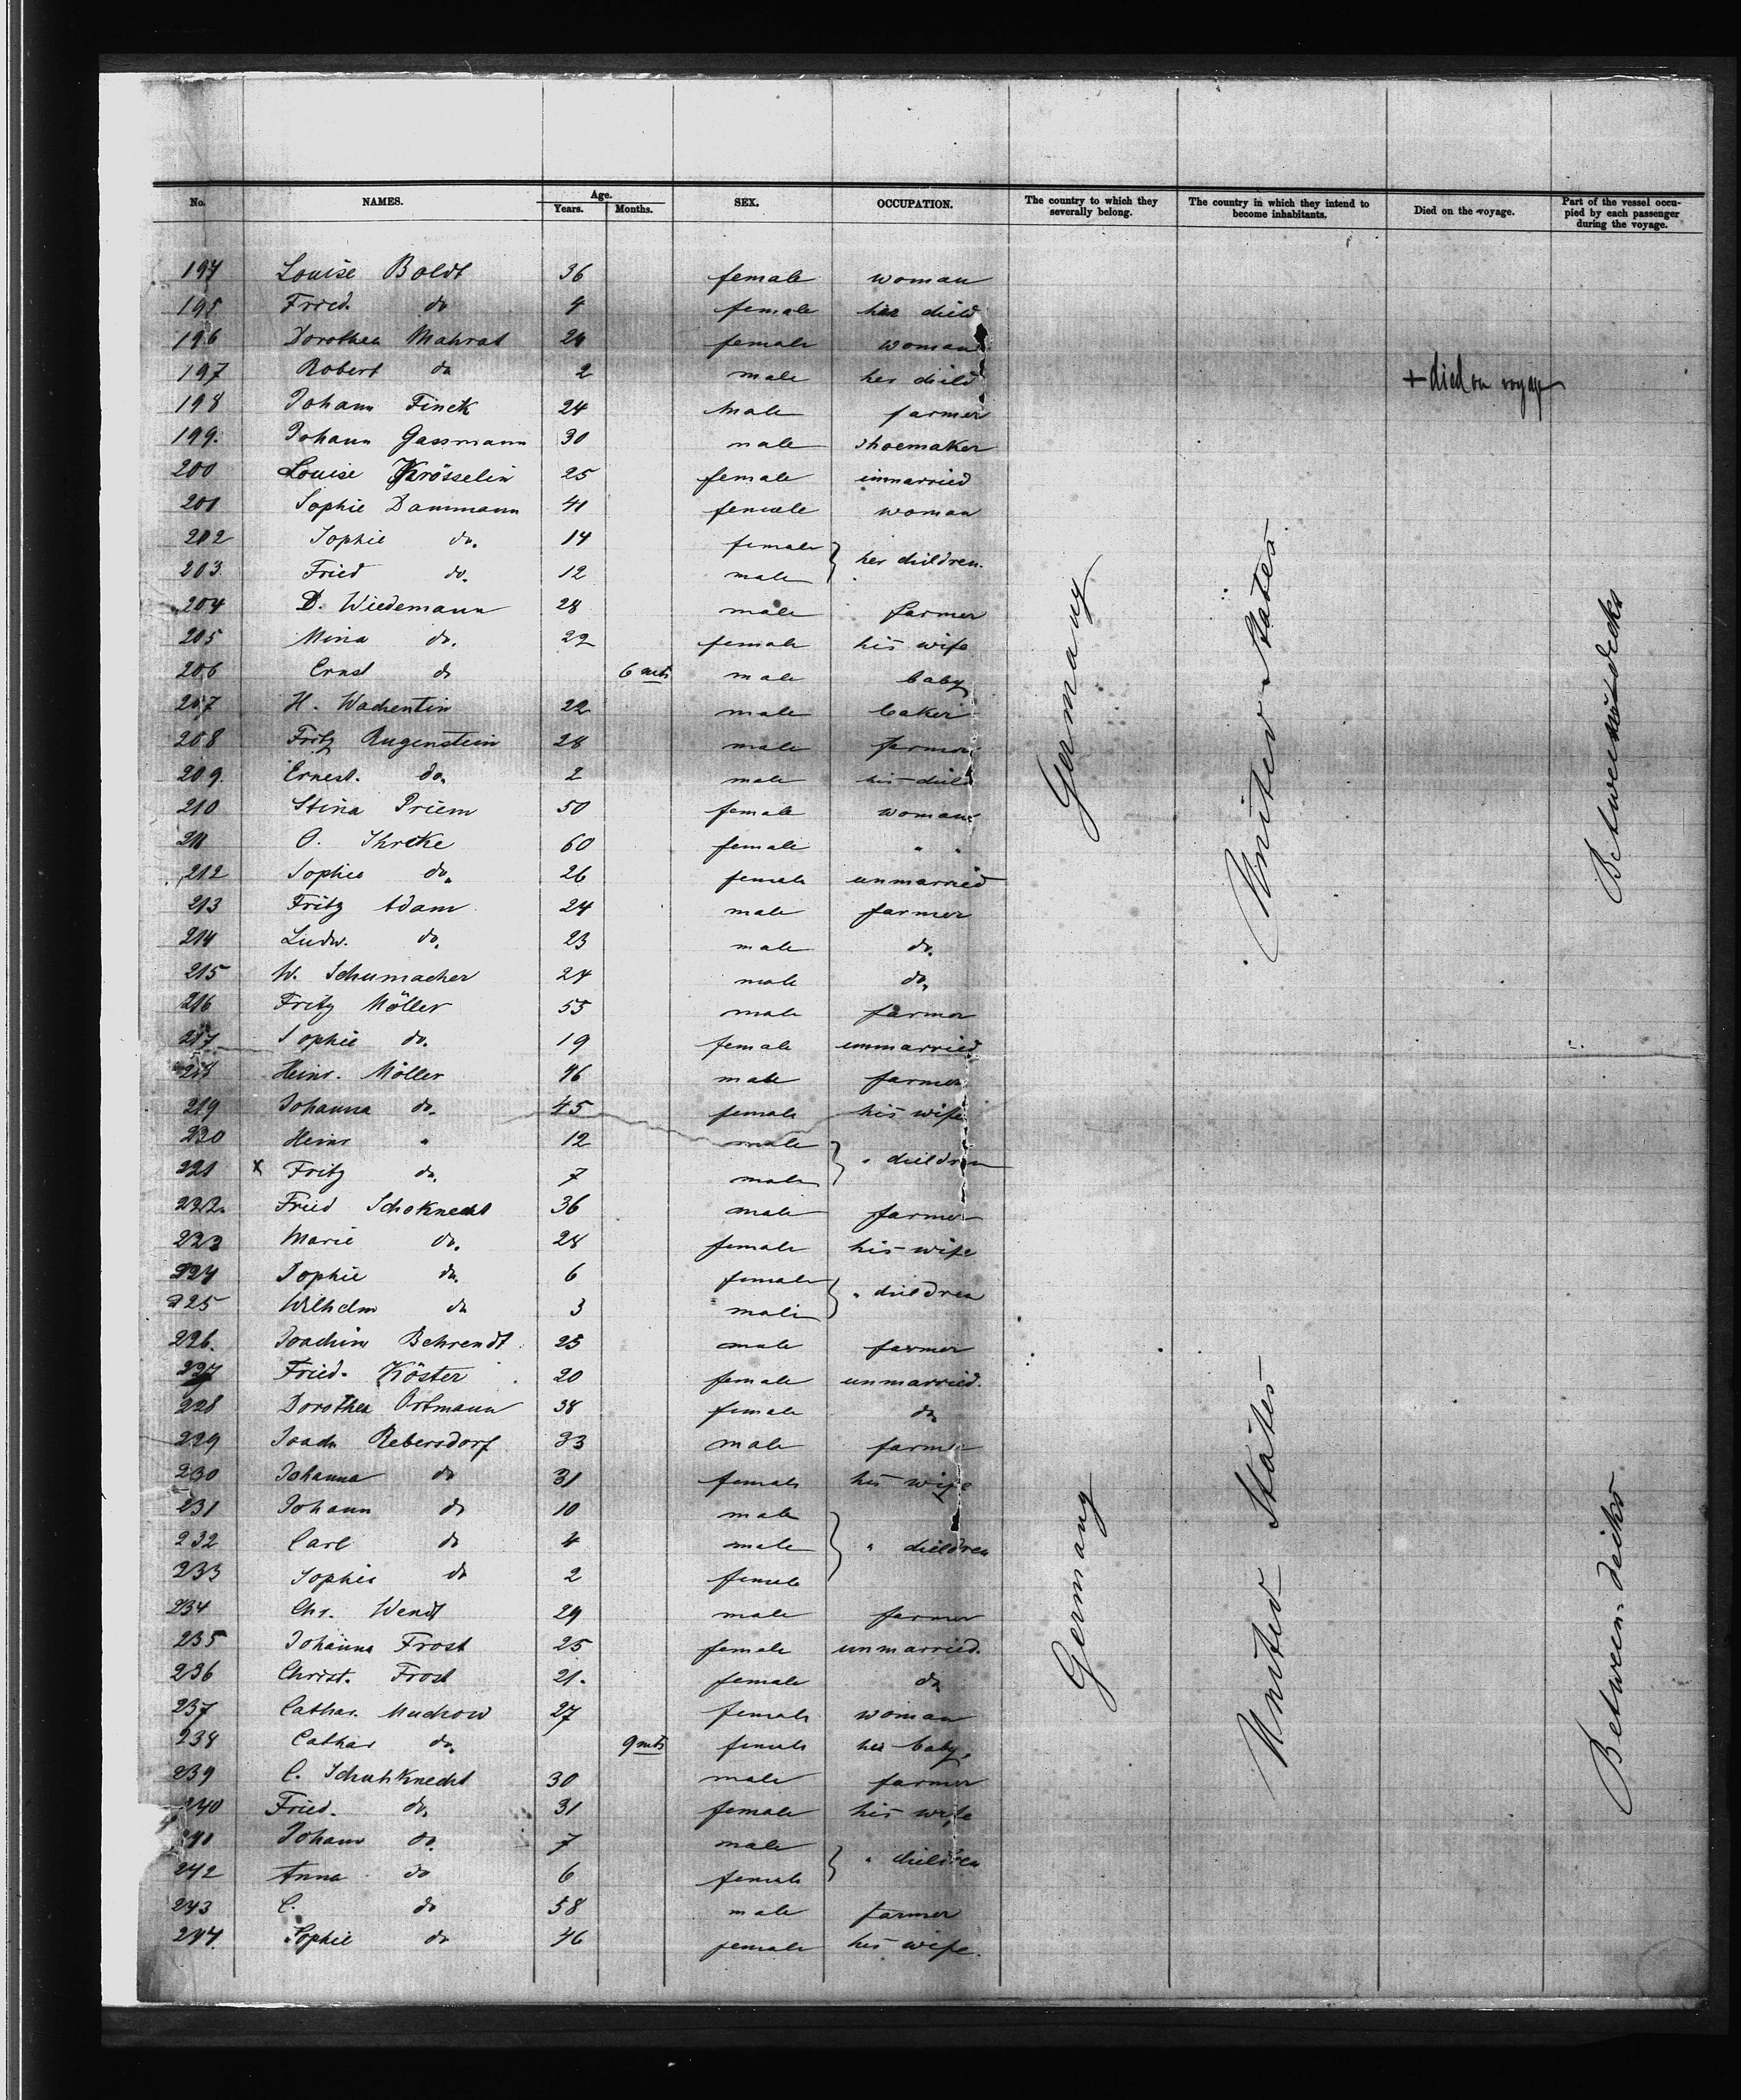 No. NAMES. Age. Years. Months. SEX. OCCUPATION. The country to which they severally belong. The country in which they intend to become inhabitants. Died on the voyage. Part of the vessel occupied by each passenger during the voyage.
194 Louise Boldt 36 female woman
195 Fried. do 4 female her child
196 Dorothea Mahrat 24 female woman
197 Robert do 2 male her child + died on voyage
198 Johann Finck 24 male farmer
199. Johann Gassmann 30 male shoemaker
200 Louise Krösselin 25 female unmarried
201 Sophie Dammann 41 female woman
202 Sophie do. 14 female } her children.
203. Fried do. 12 male
204 D. Wiedemann 28 male farmer
205 Mina do. 22 female his wife
206 Ernst do 6 mts male baby
207 H. Wachentin 22 male baker
208 Fritz Rugenstein 28 male farmer
209. Ernest. do. 2 male his child
210 Stina Priem 50 female woman
211 O. Ihrcke 60 female " "
212 Sophie do. 26 female unmarried
213 Fritz Adam 24 male farmer
214 Ludw. do. 23 male do.
215 W. Schumacher 24 male do.
216 Fritz Möller 55 male farmer
217 Sophie do. 19 female unmarried
218 Heinr. Möller 46 male farmer
219 Johanna do. 45 female his wife
220 Heinr " 12 male } " children
221 x Fritz do. 7 male
222. Fried Schoknecht 36 male farmer
223 Marie do. 28 female his wife
224 Sophie do. 6 female } " children
225 Wilhelm do 3 male
226. Joachim Behrendt 25 male farmer
227 Fried. Köster 20 female unmarried.
228 Dorothea Ortmann 38 female do
229 Joach Rebersdorf 33 male farmer
230 Johanna do 31 female his wife
231 Johann do 10 male
232 Carl do 4 male } " children
233 Sophie do 2 female
234 Chr. Wendt 29 male farmer
235 Johanna Frost 25 female unmarried.
236 Christ. Frost 21. female do
237 Cathar. Muchow 27 female woman
238 Cathar do. 9 mts female her baby.
239 C. Schuhknecht 30 male farmer
240 Fried. do. 31 female his wife
241 Johann do. 7 male } " children
242 Anna do 6 female
243 C. do 58 male farmer
244. Sophie do 46 female his wife.
Germany
United States
Between decks
Germany
United States
Between-decks